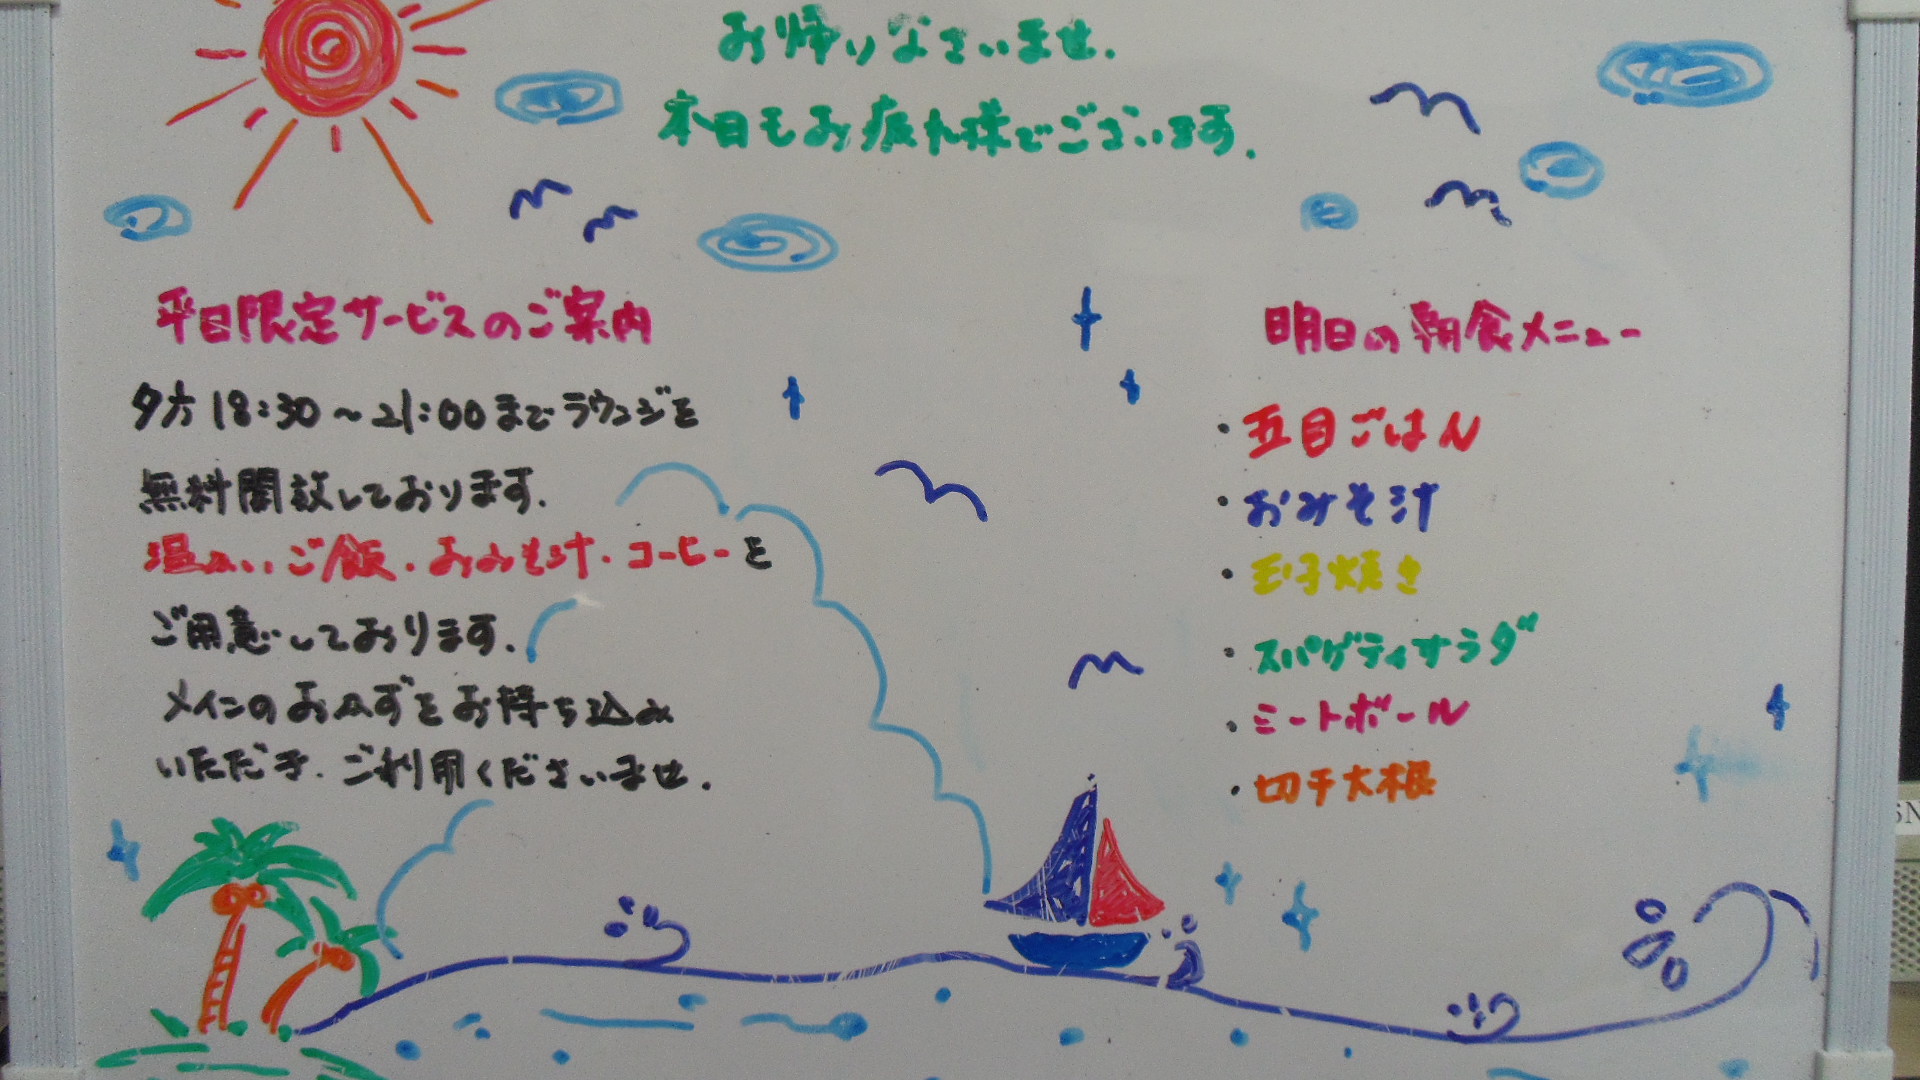 お帰りなさいませ.
本日もお疲れ様でございます.
平日限定サービスのご案内
夕方18:30～21:00までラウンジを
無料開放しております.
温かいご飯・おみそ汁・コーヒーを
ご用意しております.
メインのおかずをお持ち込み
いただき.ご利用くださいませ.
明日の朝食メニュー
・五目ごはん
・おみそ汁
・玉子焼き
・スパゲティサラダ
・ミートボール
・切干大根